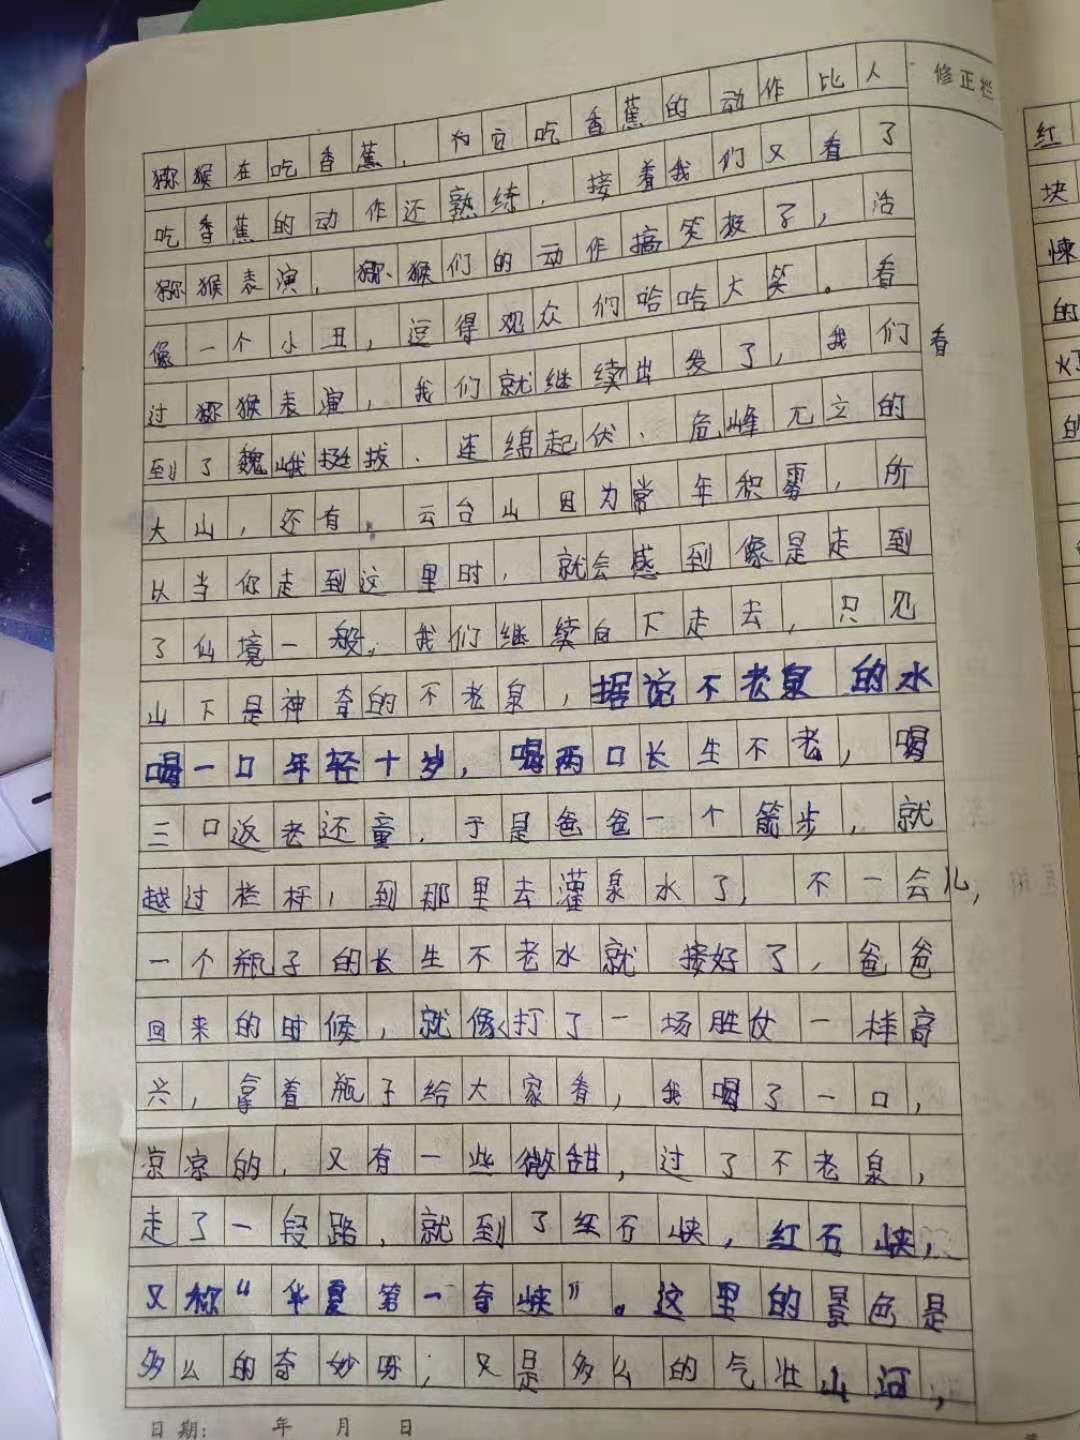 修正栏
猕猴在吃香蕉，为它吃香蕉的动作比人
吃香蕉的动作还熟练，接着我们又看了
猕猴表演，猕猴们的动作搞笑极了，活
像一个小丑，逗得观众们哈哈大笑。看
过猕猴表演，我们就继续出发了，我们
看
到了巍峨挺拔、连绵起伏、危峰兀立的
大山，还有，云台山因为常年积雾，所
以当你走到这里时，就会感到像是走到
了仙境一般，我们继续向下走去，只见
山下是神奇的不老泉，据说不老泉的水
喝一口年轻十岁，喝两口长生不老，喝
三口返老还童，于是爸爸一个箭步，就
越过栏杆，到那里去灌泉水了，不一会儿，
一个瓶子的长生不老水就接好了，爸爸
回来的时候，就像打了一场胜仗一样高
兴，拿着瓶子给大家看，我喝了一口，
凉凉的，又有一些微甜，过了不老泉，
走了一段路，就到了红石峡，红石峡，
又称“华夏第一奇峡”。这里的景色是
多么的奇妙呀；又是多么的气壮山河，
日期： 年 月 日
红
块
悚
的
火了
的